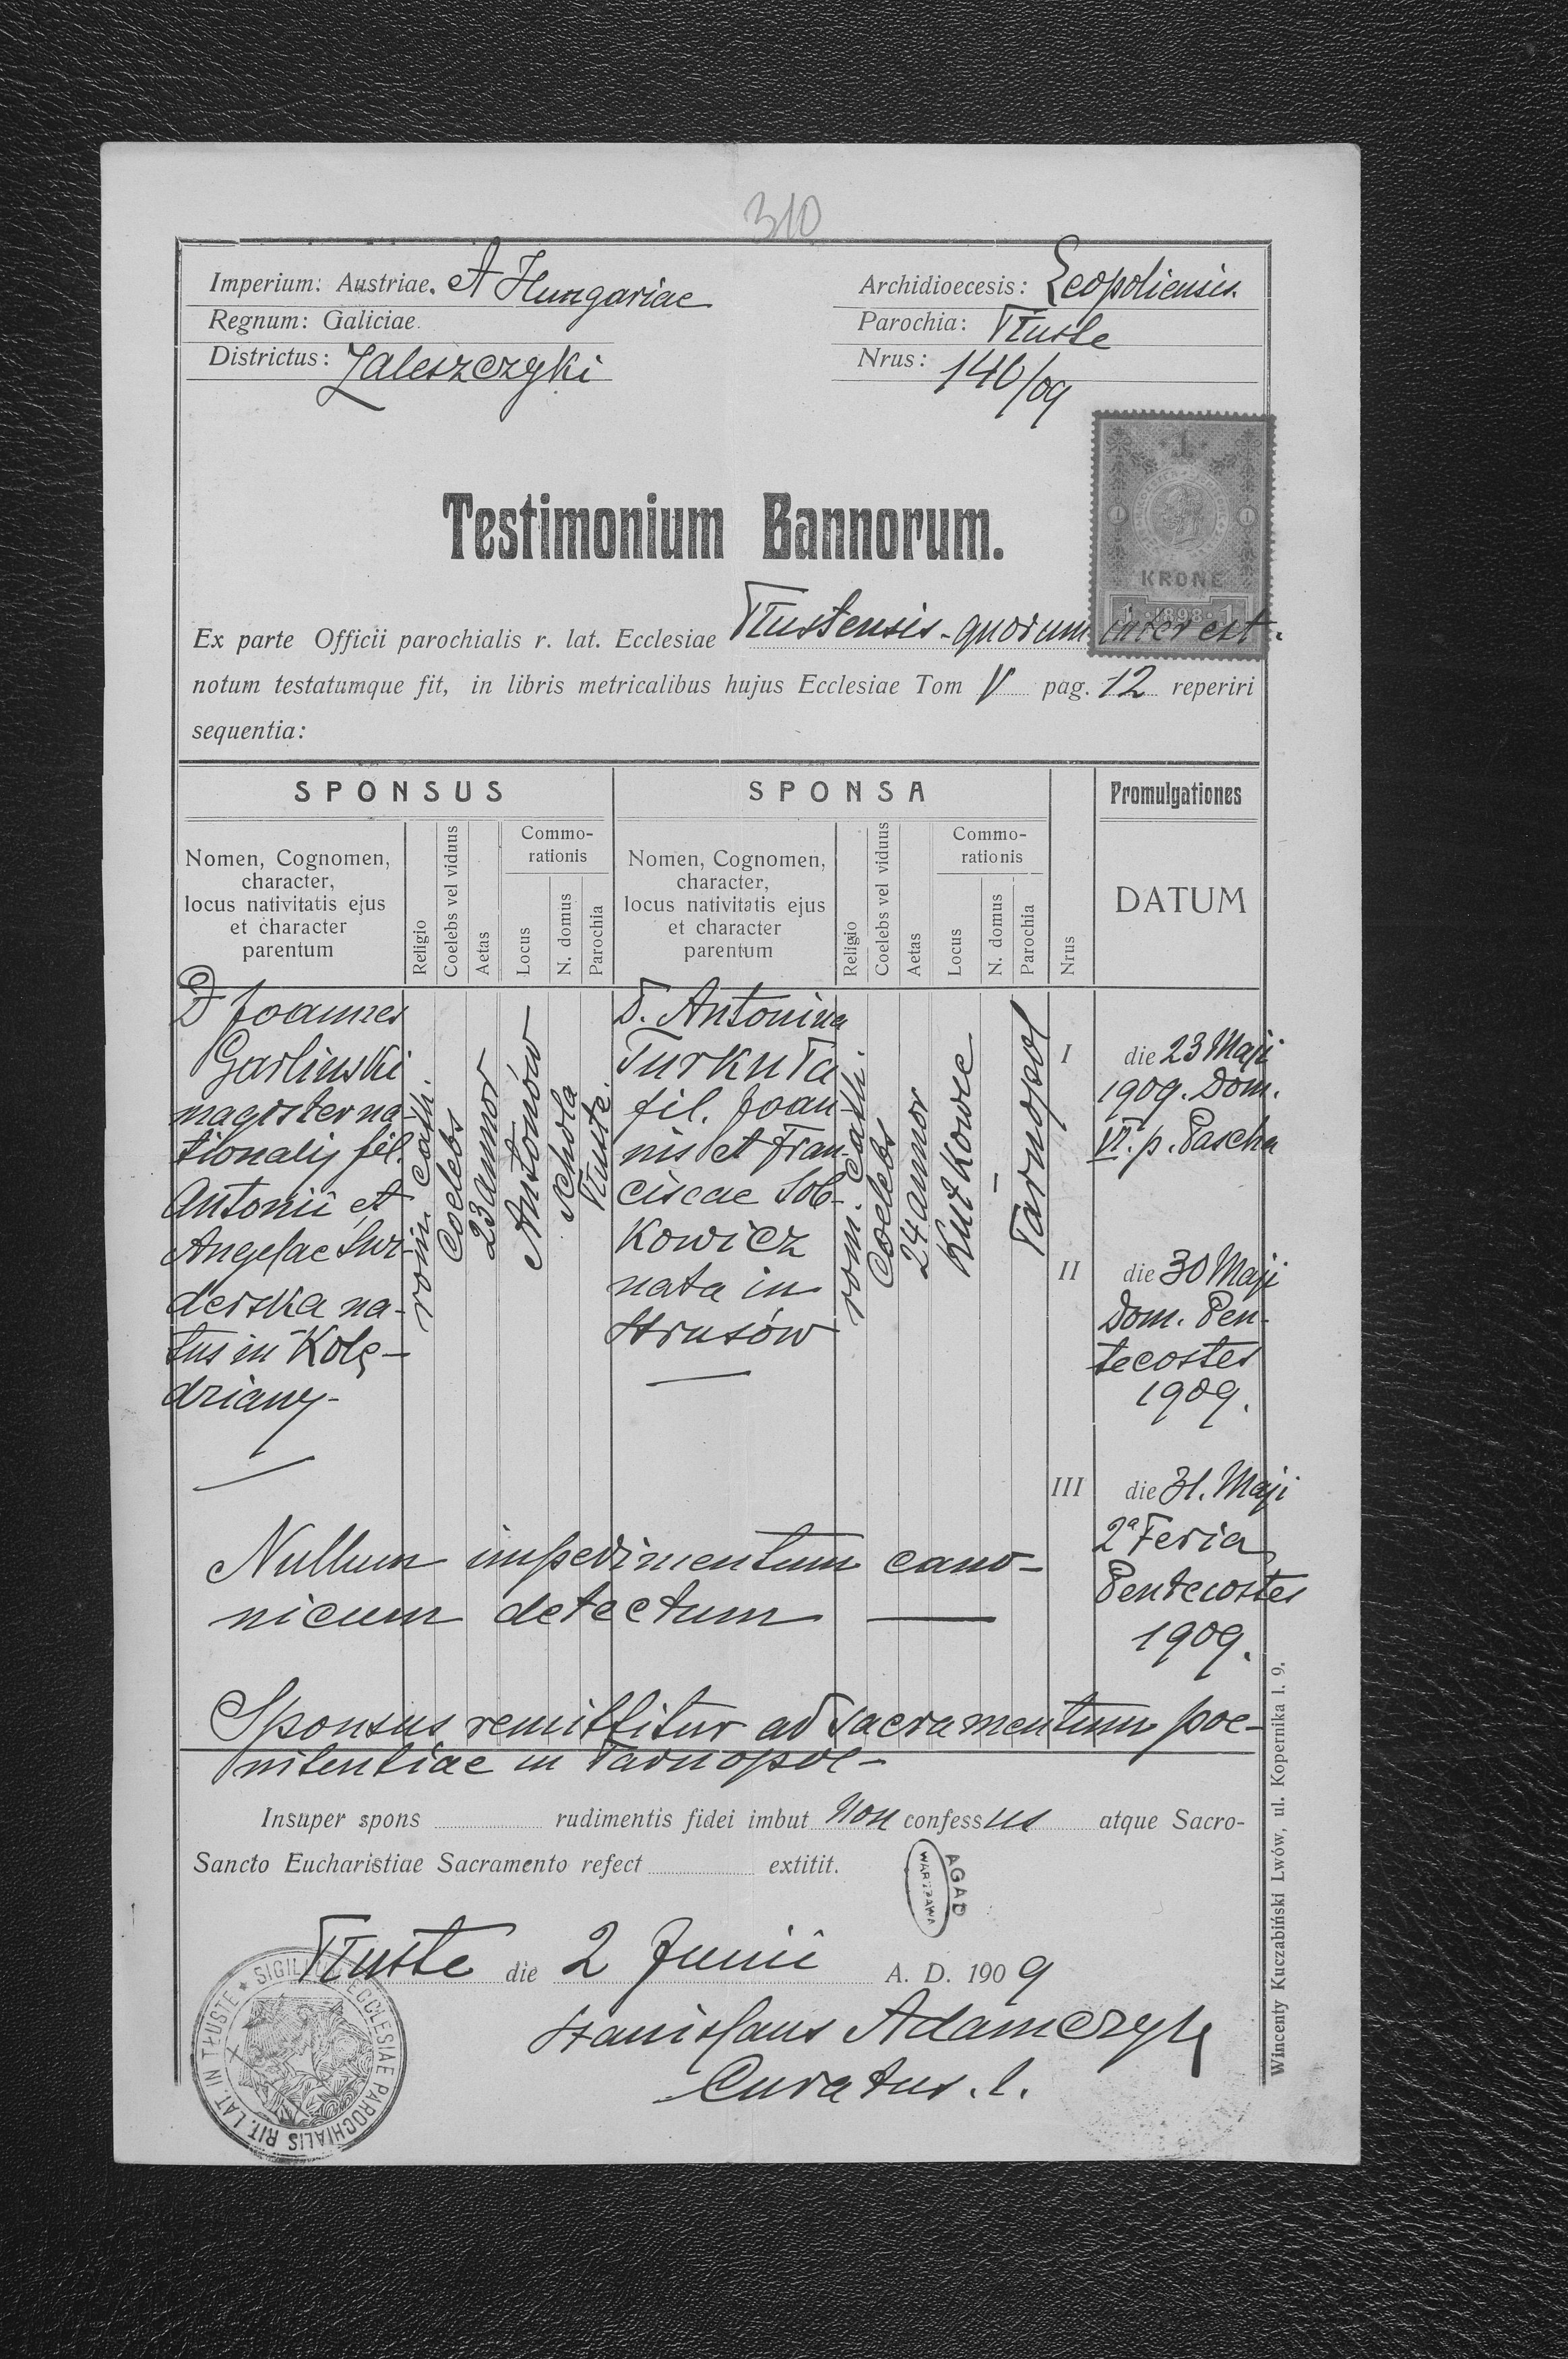 310
Imperium: Austriae. et Hungariae
Regnum: Galiciae.
Districtus: Zaleszczyki
Archidioecesis: Leopoliensis.
Parochia: Tłuste
Nrus: 140/09
1
KRONE
1 · 1898 · 1
Testimonium Bannorum.
Ex parte Officii parochialis r. lat. Ecclesiae Tłustensis - quorum interest.
notum testatumque fit, in libris metricalibus hujus Ecclesiae Tom V pag. 12 reperiri
sequentia:
SPONSUS
Nomen, Cognomen,
character,
locus nativitatis ejus
et character
parentum
Religio
Coelebs vel viduus
Aetas
Commo-
rationis
Locus
N. domus
Parochia
SPONSA
Nomen, Cognomen,
character,
locus nativitatis ejus
et character
parentum
Religio
Coelebs vel viduus
Aetas
Commo-
rationis
Locus
N. domus
Parochia
Nrus
Promulgationes
DATUM
D Joannes
Garlinski
magister na
tionalis fil.
Antonii et
Angelae Swi-
derska na-
tus in Kolę-
dziany -
rom. cath.
Coelebs
23 annor
Antonów
Schola
Tłuste.
D. Antonina
Turkuła
fil. Joan-
nis et Fran-
ciscae Sob-
kowicz
nata in
Strusów
rom. cath.
Coelebs
24 annor
Kutkowce
-
Tarnopol
I die 23 Maji
1909. Dom.
VI. p. Pascha
II die 30 Maji
Dom. Pen-
tecostes
1909.
III die 31. Maji
2ª Feria
Pentecostes
1909.
Nullum impedimentum cano-
nicum detectum
Sponsus remittitur ad sacramentum poe-
nitentiae in Tarnopol -
Insuper spons rudimentis fidei imbut non confessus atque Sacro-
Sancto Eucharistiae Sacramento refect extitit.
AGAD
WARSZAWA
Tłuste die 2 Junii A. D. 1909
Stanislaus Adamczyk
Curatus. l.
SIGILLUM ECCLESIAE PAROCHIALIS RIT. LAT. IN TŁUSTE
Wincenty Kuczabiński Lwów, ul. Kopernika l. 9.